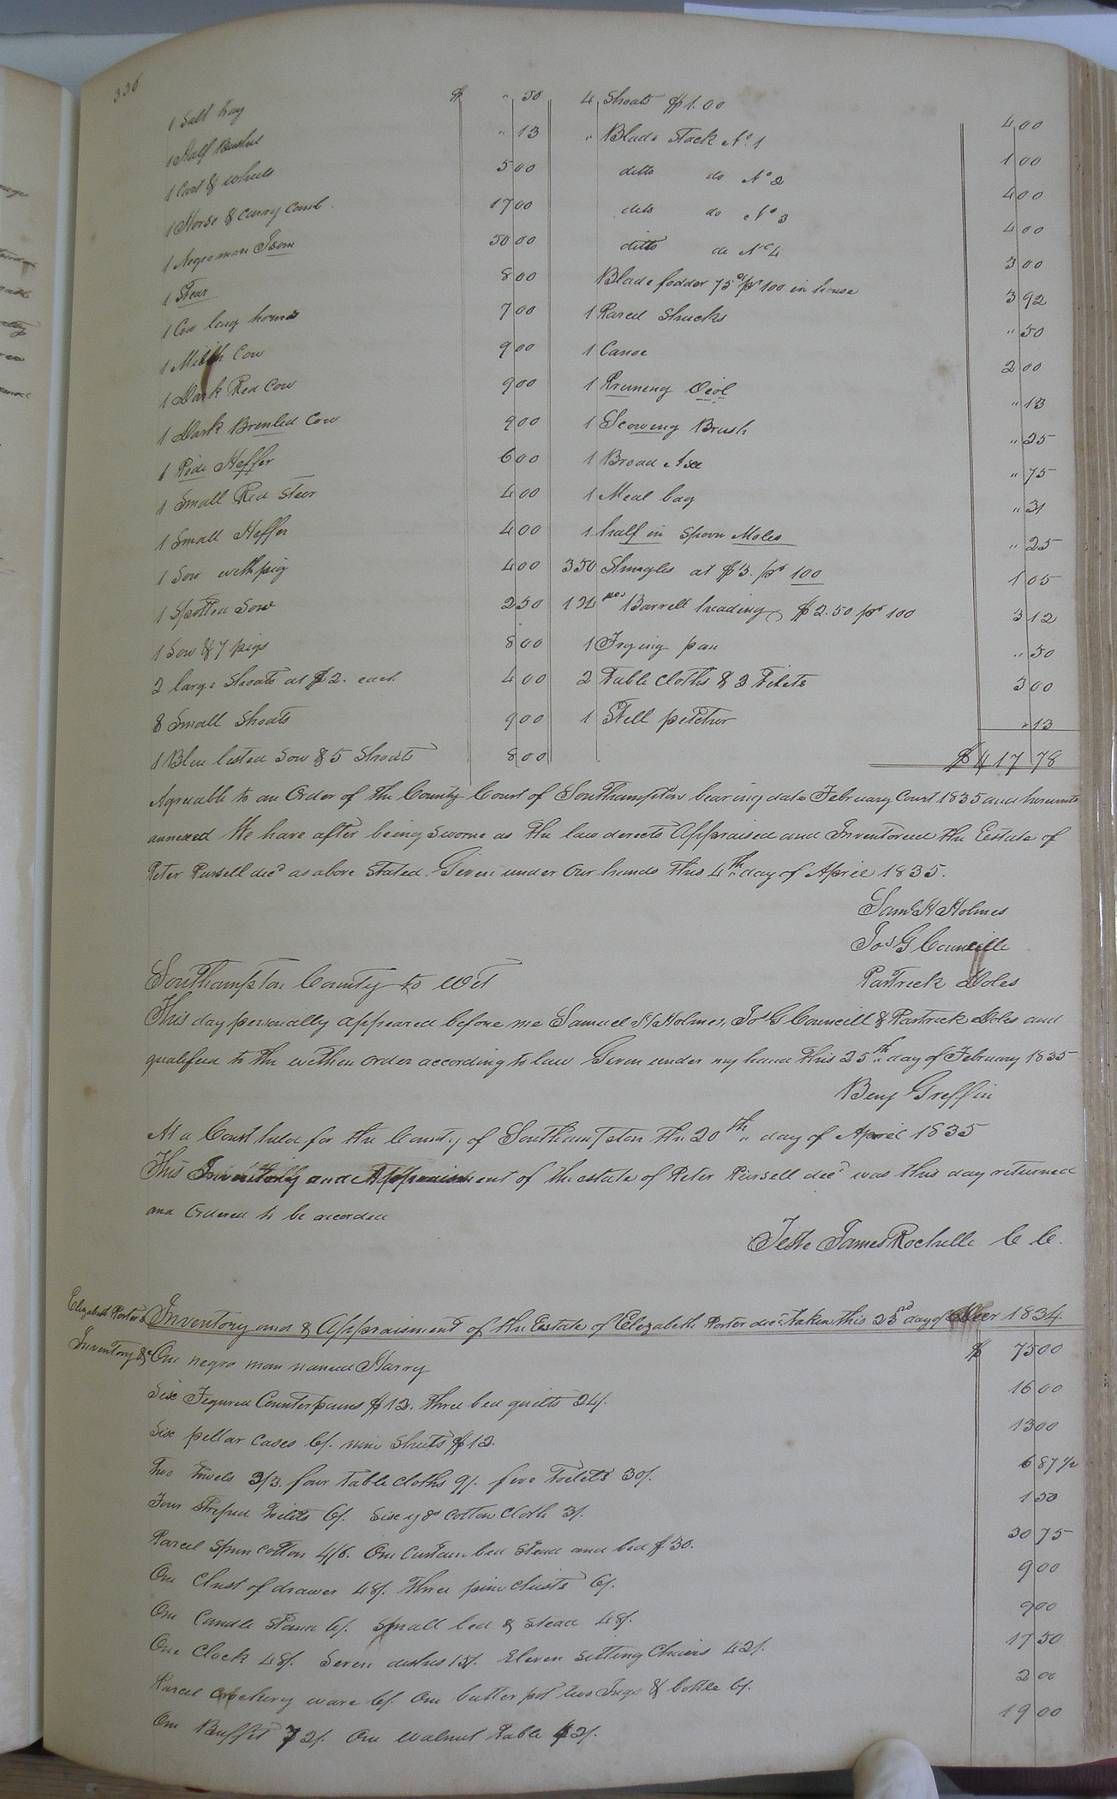 336
1 Salt bag $ " 50
1 Half Bushel " 13
1 Cart & wheels 5 00
1 Horse & curry comb 17 00
1 Negro man Isom 50 00
1 Stear 8 00
1 Cow long horns 7 00
1 Milch Cow 9 00
1 Dark Red Cow 9 00
1 Dark Brinled Cow 9 00
1 Pide Heffer 6 00
1 Small Red Stear 4 00
1 Small Heffer 4 00
1 Sow with pig 4 00
1 Spotted Sow 2 50
1 Sow & 7 pigs 8 00
2 large Shoats at $2. each 4 00
8 Small Shoats 9 00
1 Blue listed Sow & 5 Shoats 8 00
4 Shoats $1.00 4 00
" Blade Stack No. 1 1 00
ditto do No 2 4 00
ditto do No 3 4 00
ditto do No 4 3 00
Blade fodder 75 c pr 100 in house 3 92
1 Parcel Shucks " 50
1 Canoe 2 00
1 Pruning " 13
1 Scowing Brush " 25
1 Broad Axe " 75
1 Meal bag " 31
1 half in Spoon Moles " 25
350 Shingles at $3. pr 100 1 05
Barrell heading $2.50 pr 100 3 12
1 Frying pan " 50
2 Table Cloths & 3 3 00
1 Still pitcher " 13
$ 417 78
Agreeable to an Order of the County Court of Southampton bearing date February Court 1835 and hereunto
annexed We have after being Sworne as the law derects Appraised and Inventored the Eestate of
Peter Pursell decd as above Stated. Given under Our hands this 4th day of April 1835.
Saml H Holmes
Jos G Councille
Partrick Doles
Southampton County to Wit
This day personally appeared before me Samuel H Holmes, Jos G Councill & Partrick Doles and
qualified to the within order according to law Given under my hand this 25th day of February 1835
Benj Greffin
At a Court held for the County of Southampton the 20th day of April 1835
This Inventory and Appraisment of the estate of Peter Pursell decd was this day returned
and Ordered to be recorded
Teste James Rochelle C C.
Elizabeth Porter's
Inventory &c
Inventory and & Appraisment of the Estate of Elizabeth Porter decd taken this 23d day of 1834
One negro man named Harry $ 75 00
Six Figured Counterpains $12. three bed quilts 24/. 16 00
Six pillar Cases 6/. nine Sheets $12. 13 00
Two towels 2/3. four table cloths 9/. five Toilets 30/. 6 87 1/2
Four Striped Toilets 6/. Six yds Cotton Cloth 3/. 1 50
Parcel Spun Cotton 4/6. One Curtain bed Stead and bed $30. 30 75
One Chest of drawer 48/. three pine chests 6/. 9 00
One Candle Stand 6/. Small bed & Stead 48/. 9 00
One Clock 48/. Seven dishes 15/. Eleven Setting Chairs 42/. 17 50
Parcel crockery ware 6/. One butter pot two Jugs & bottle 6/. 2 00
One Buffet 72/. One walnut table 42/. 19 00